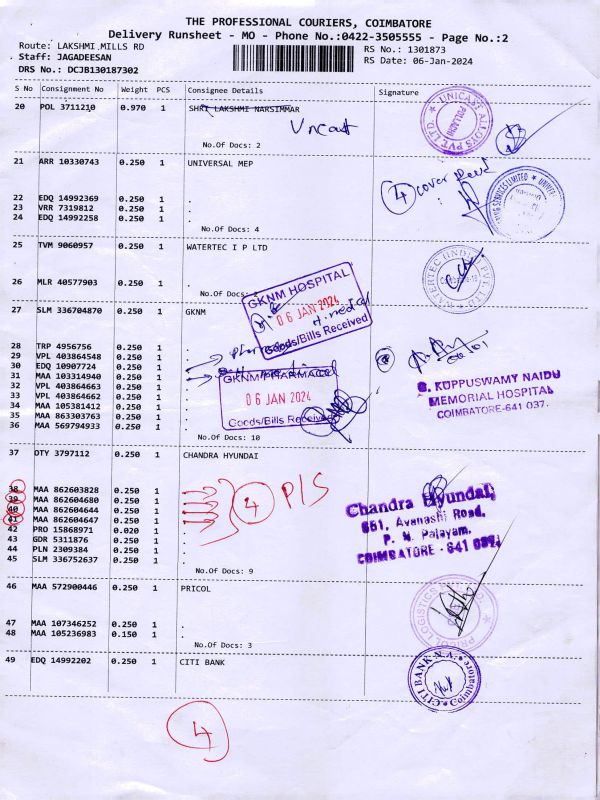 THE PROFESSIONAL COURIERS, COIMBATORE
Delivery Runsheet - MO - Phone No.:0422-3505555 - Page No.:2
Route: LAKSHMI MILLS RD
Staff: JAGADEESAN
DRS No.: DCJB130187302
RS No.: 1301873
RS Date: 06-Jan-2024
S No Consignment No Weight PCS Consignee Details Signature
20 POL 3711210 0.970 1 SHRI LAKSHMI NARSIMMAR
No.Of Docs: 2
21 ARR 10330743 0.250 1 UNIVERSAL MEP
4 cover
22 EDQ 14992369 0.250 1 .
23 VRR 7319812 0.250 1 .
24 EDQ 14992258 0.250 1 .
No.Of Docs: 4
25 TVM 9060957 0.250 1 WATERTEC I P LTD
26 MLR 40577903 0.250 1 .
27 SLM 336704870 0.250 1 GKNM
GKNM HOSPITAL
06 JAN 2024
Goods/Bills Received
28 TRP 4956756 0.250 1 .
29 VPL 403864548 0.250 1 .
30 EDQ 10907724 0.250 1 .
31 MAA 103314940 0.250 1 .
32 VPL 403864663 0.250 1 .
33 VPL 403864662 0.250 1 .
34 MAA 105381412 0.250 1 .
35 MAA 863303763 0.250 1 .
36 MAA 569794933 0.250 1 .
GKNM PHARMACY
06 JAN 2024
Goods/Bills Received
G. KUPPUSWAMY NAIDU
MEMORIAL HOSPITAL
COIMBATORE-641 037.
No.Of Docs: 10
37 OTY 3797112 0.250 1 CHANDRA HYUNDAI
38 MAA 862603828 0.250 1 .
39 MAA 862604680 0.250 1 .
40 MAA 862604644 0.250 1 .
41 MAA 862604647 0.250 1 .
42 PRO 15868971 0.020 1 .
43 GDR 5311876 0.250 1 .
44 PLN 2309384 0.250 1 .
45 SLM 336752637 0.250 1 .
4 P/S
Chandra Hyundai,
661, Avanashi Road,
P. N. Palayam,
COIMBATORE - 641 037.
No.Of Docs: 9
46 MAA 572900446 0.250 1 PRICOL
PRICOL LOGISTICS
47 MAA 107346252 0.250 1 .
48 MAA 105236983 0.150 1 .
No.Of Docs: 3
49 EDQ 14992202 0.250 1 CITI BANK
CITI BANK N.A.
Coimbatore
4